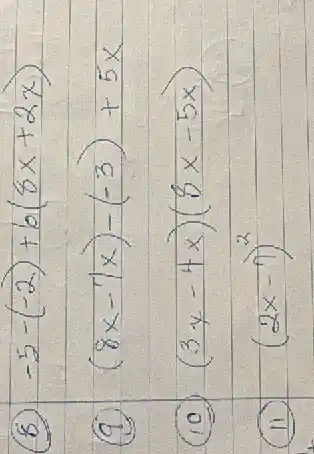 ⑧ -5-(-2)+6(8x+2x)
⑨ (8x-7x)-(-3)+5x
⑩ (3x-4x)(8x-5x)
⑪ (2x-7)²